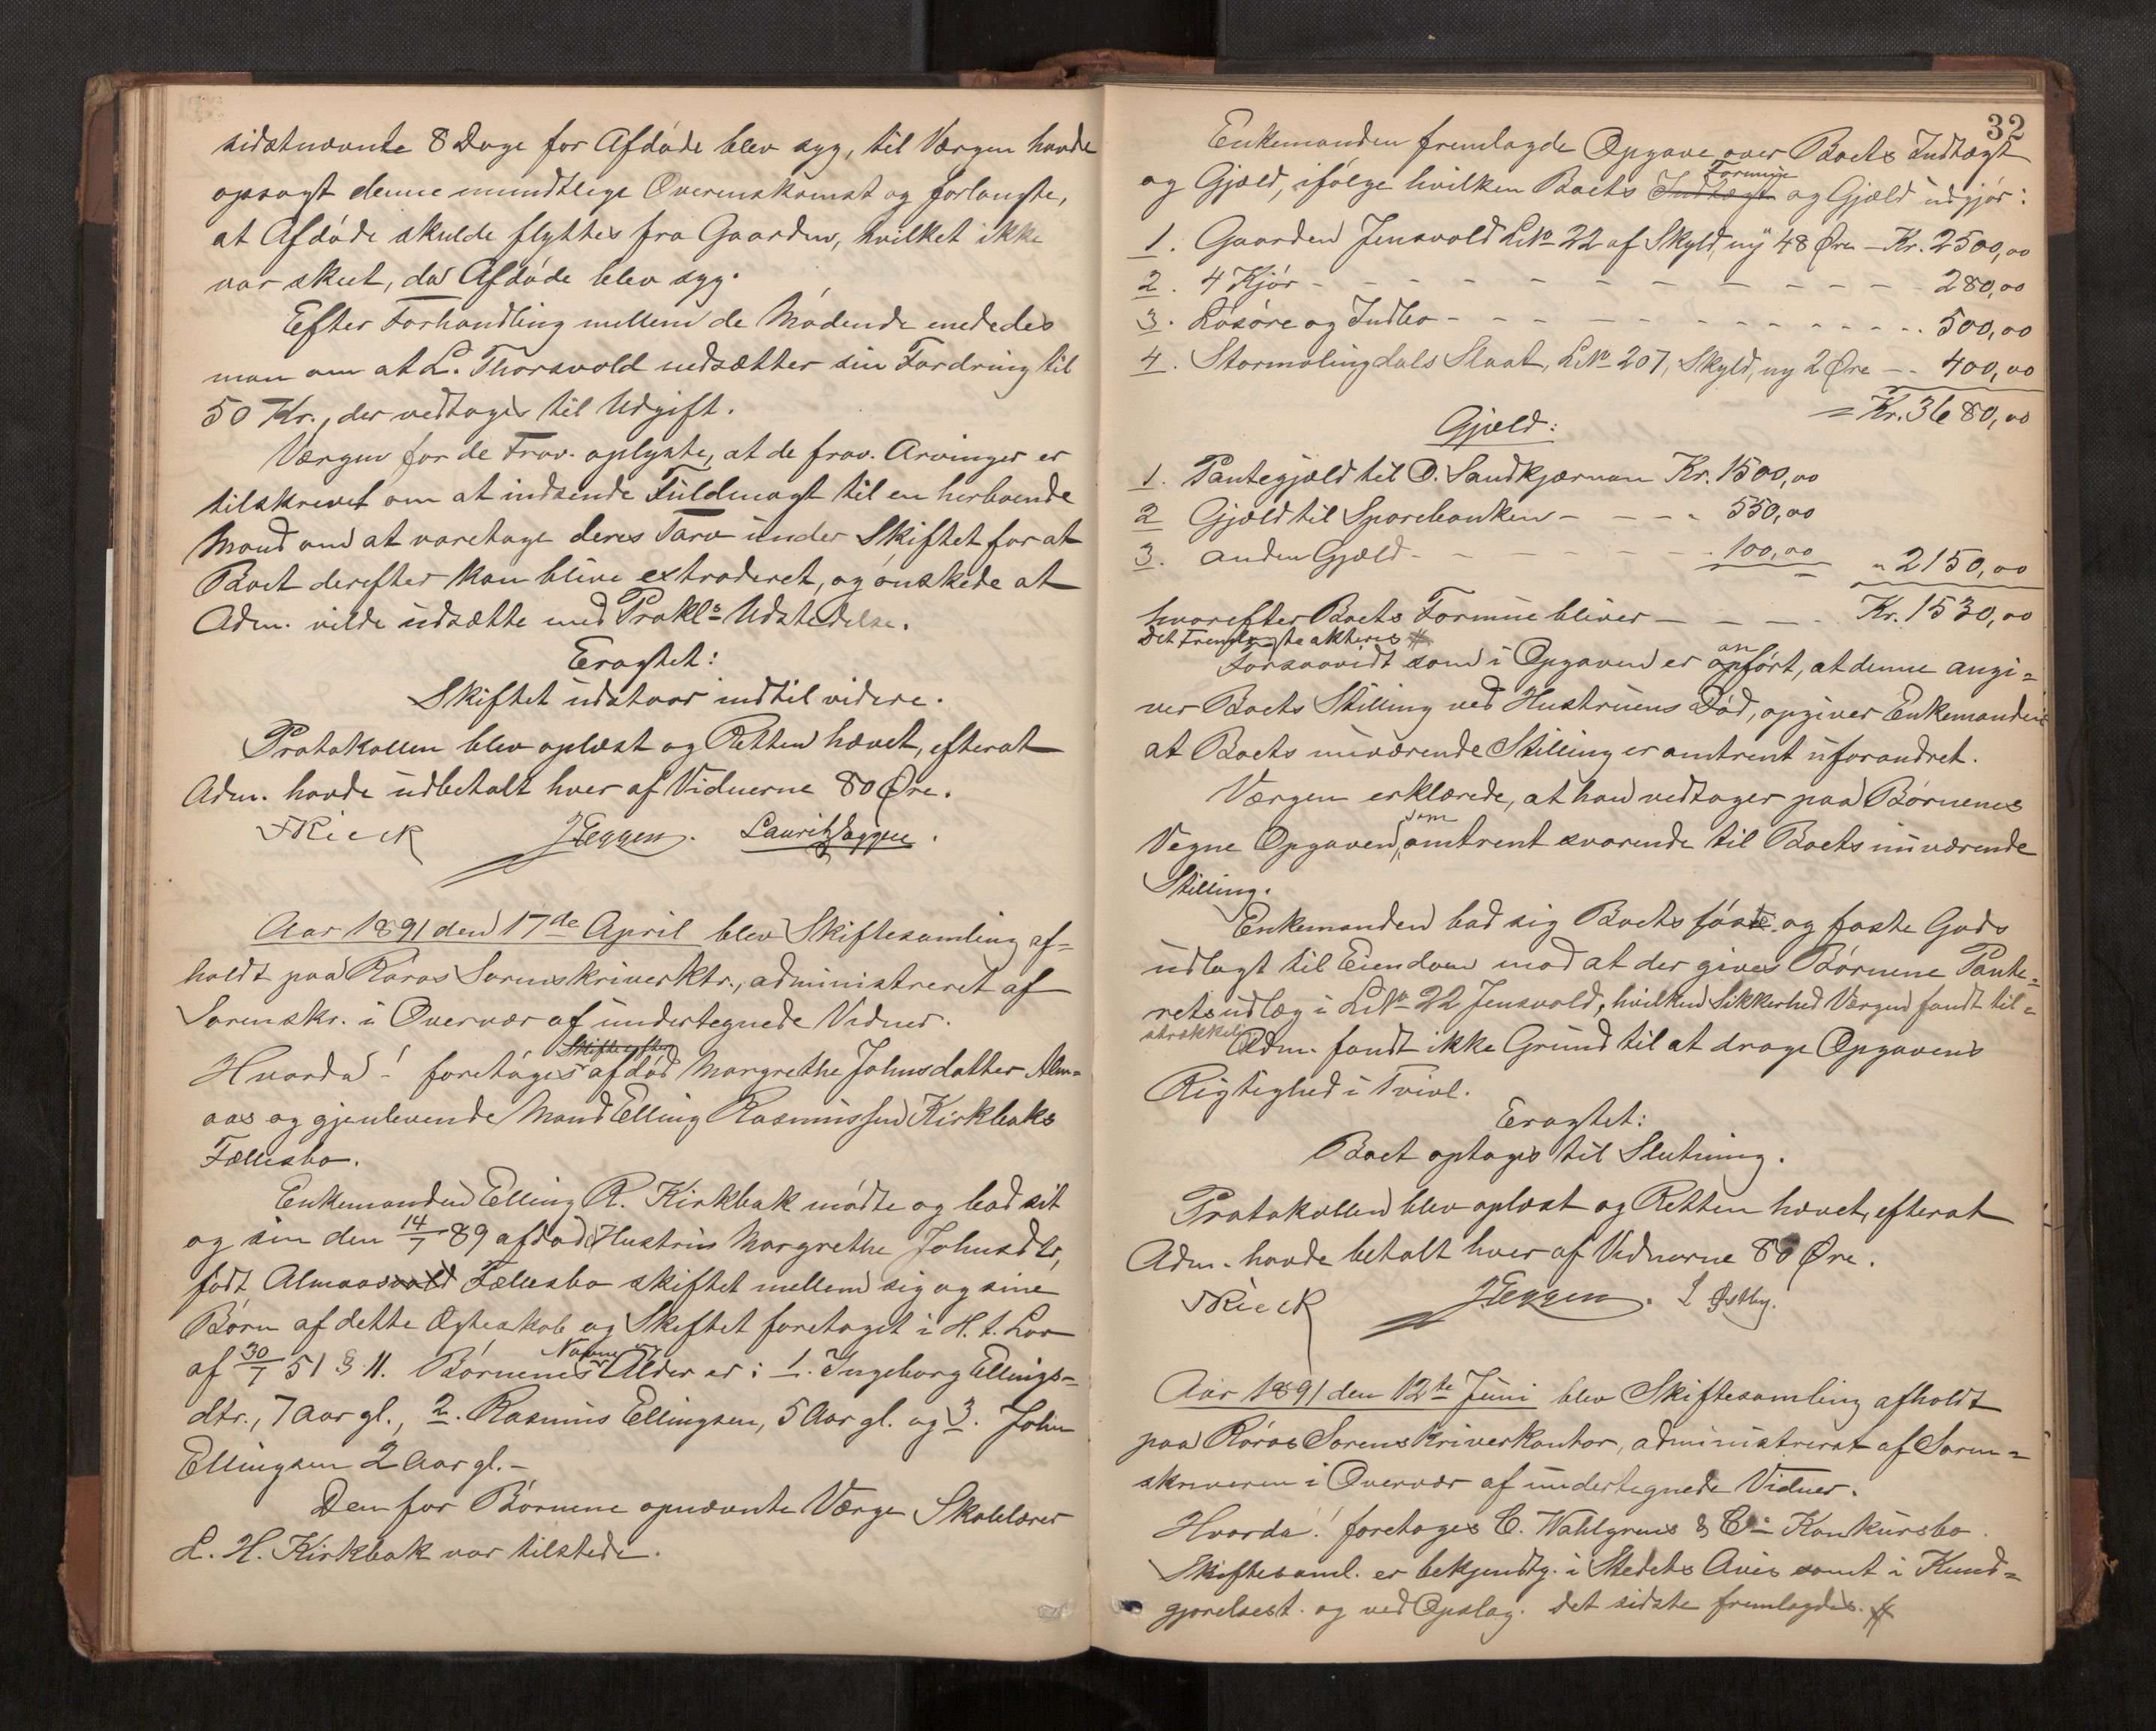 sidstnævnte 8 Dage før Afdøde blev syg, til Værgen havde
opsagt denne mundtlige Overenskomst og forlangte,
at Afdøde skulde flyttes fra Gaarden, hvilket ikke
var skeet, da Afdøde blev syg.
Efter Forhandling mellem de Mødende enededes
man om at L. Thorsvold nedsætter sin Fordring til
50 Kr., der vedtages til Udgift.
Værgen for de Frav. oplyste, at de frav. Arvinger er
tilskrevet om at indsende Fuldmagt til en herboende
Mand om at varetage deres Tarv under Skiftet for at
Boet derefter kan blive extraderet, og ønskede at
Adm. vilde udsætte med Prokl.s Udstedelse.
Eragtet:
Skiftet udstaar indtil videre.
Protokollen blev oplæst og Retten hævet, efterat
Adm. havde udbetalt hver af Vidnerne 80 Øre.
F Rieck J Eggen. Lauritz
Aar 1891 den 17de April blev Skiftesamling af=
holdt paa Røros Sorenskriverktr., administreret af
Sorenskr. i Overvær af undertegnede Vidner.
Skifte efter
Hvorda! foretages afdød Margrethe Johnsdatter Alm=
aas og gjenlevende Mand Elling Rasmussen Kirkbaks
Fællesbo.
Enkemanden Elling R. Kirkbak mødte og bad sit
og sin den 14/7 89 afdød Hustrus Margrethe Johnsdtr,
født Almaasvold Fællesbo skiftet mellem sig og sine
Børn af dette Ægteskab og Skiftet foretaget i H. t. Lov
af 30/7 51 § 11. Børnenes Navne og Alder er: 1. Ingeborg Ellings=
dtr., 7 Aar gl., 2. Rasmus Ellingsen, 5 Aar gl. og 3. John
Ellingsen 2 Aar gl. –
Den for Børnene opnævnte Værge Skolelærer
L. H. Kirkbak var tilstede.
32
Enkemanden fremlagde Opgave over Boets Indtægt
og Gjæld, ifølge hvilken Boets Indtægt Formue og Gjæld udgjør:
1. Gaarden Jensvold LNo 22 af Skyld, ny 48 Øre – Kr. 2500,00
2. 4 Kjør – – – – 280,00
3. Løsøre og Indbo – – – – 500,00
4. Stormolingdals Slaat, LNo 207, Skyld, ny 2 Øre – 400,00
= Kr. 3680,00
Gjæld:
1. Pantegjæld til O. Sandkjærnan Kr. 1500,00
2 Gjæld til Sparebanken – – – „ 550,00
3. Anden Gjæld – – – – 100,00 „ 2150,00
hvorefter Boets Formue bliver – – – Kr. 1530,00
Det Fremlagte akteres #
Forsaavidt som i Opgaven er anført, at denne angi=
ver Boets Stilling ved Hustruens Død, opgiver Enkemanden
at Boets nuværende Stilling er omtrent uforandret.
Værgen erklærede, at han vedtager paa Børnenes
Vegne Opgaven, som omtrent svarende til Boets nuværende
Stilling.
Enkemanden bad sig Boets løse og faste Gods
udlagt til Eiendom mod at der gives Børnene Pante=
retsudlæg i LNo 22 Jensvold, hvilken Sikkerhed Værgen fandt til=
strækkelig.
Adm. fandt ikke Grund til at drage Opgavens
Rigtighed i Tvivl.
Eragtet:
Boet optages til Slutning.
Protokollen blev oplæst og Retten hævet, efterat
Adm. havde betalt hver af Vidnerne 80 Øre.
F Rieck J Eggen. L Østby.
Aar 1891 den 12te Juni blev Skiftesamling afholdt
paa Røros Sorenskriverkontor, administreret af Soren=
skriveren i Overvær af undertegnede Vidner.
Hvorda! foretages C. Wahlgrens & Co Konkursbo.
Skiftesaml. er bekjendtg. i Stedets Avis samt i Kund=
gjørelsest. og ved Opslag. Det sidste fremlagdes. #